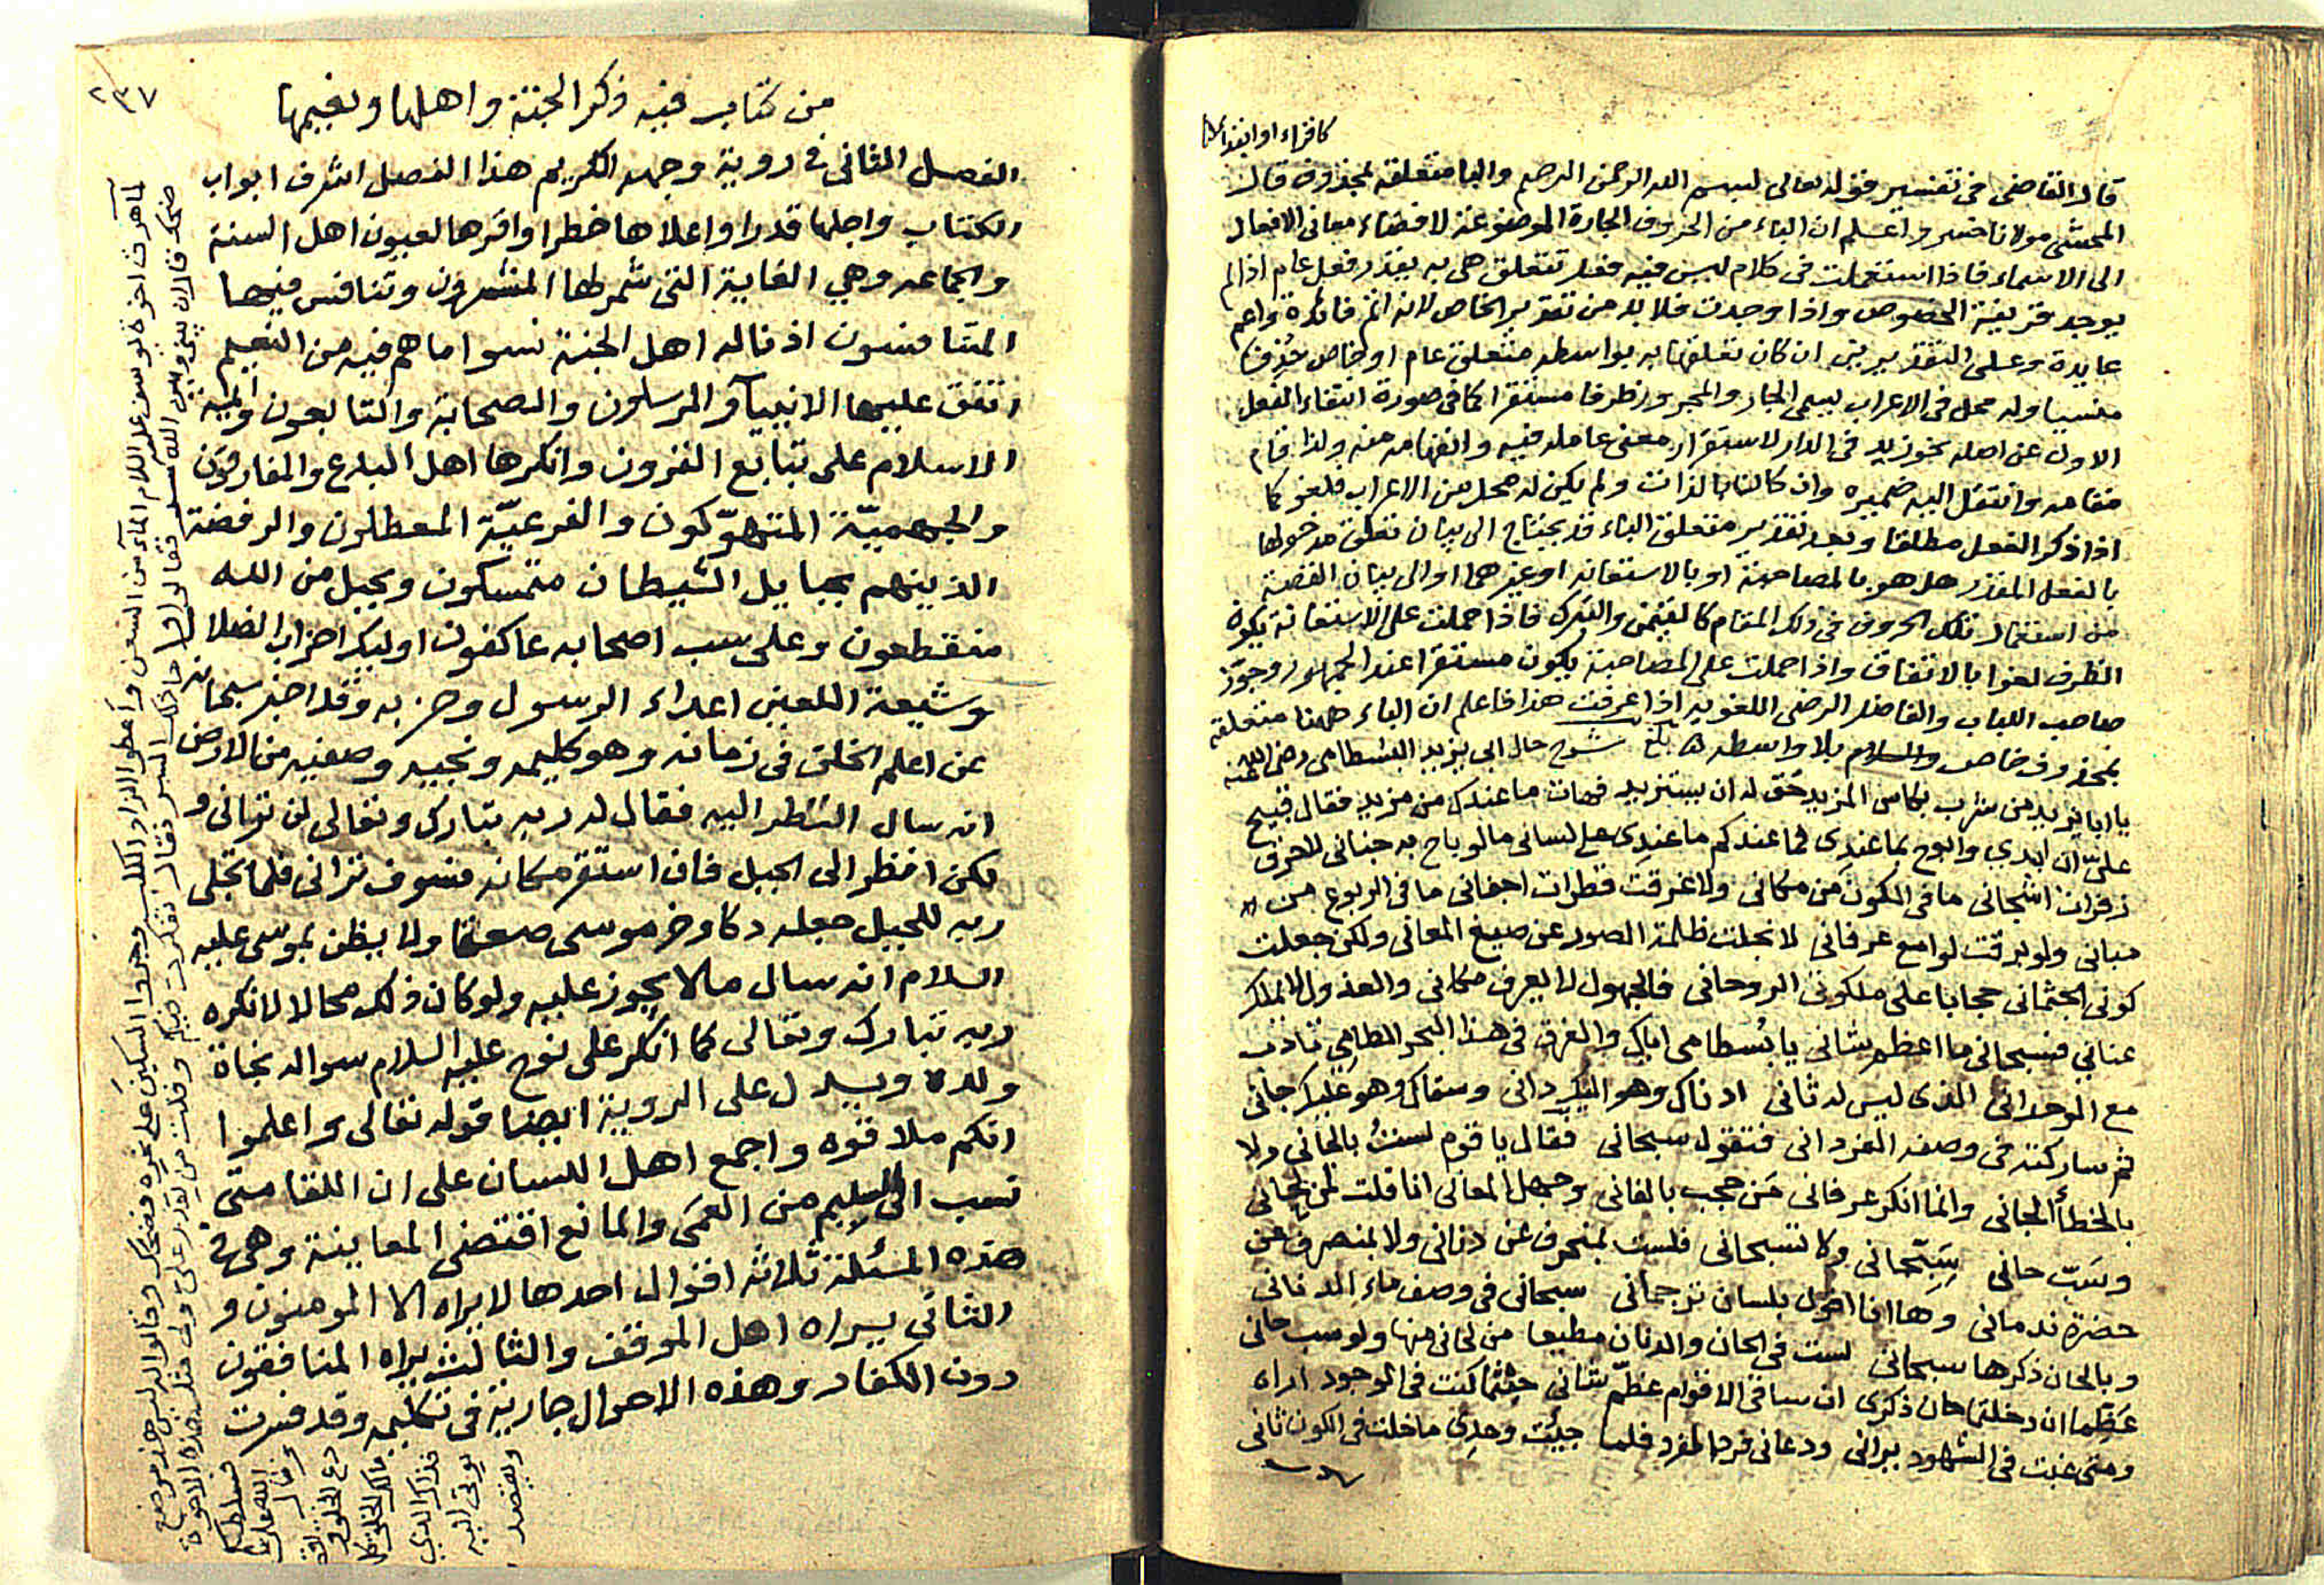 كاقراء او ابتداء
قال القاضى فى تفسير قوله تعالى لبسم الله الرحمن الرحيم والبا متعلقة بمحذوف قال
المحشى مولانا خسرو اعلم ان الباء من الحروف الجارة الموضوعة لافضاء معانى الافعال
الى الاسماء فاذا استعملت فى كلام ليس فيه فعل تتعلق هى به يقدر فعل عام اذا لم
يوجد قرينة الخصوص واذا وجدت فلا بد من تقدير الخاص لانه اتم فائدة واعم
عايدة وعلى التقديرين ان كان تعلقها به بواسطه متعلق عام او خاص حذف
منسيا وله محل فى الاعراب يسمى الجار والمجرور ظرفا مستقرا كما فى صورة انتفاء الفعل
الاول عن اصله نحو زيد فى الدار لاستقرار معنى عامله فيه وانفهامه منه ولذا قام
مقامه وانتقل اليه ضميره وان كالثابالذات ولم يكن له محل من الاعراب فلغو كما
اذا ذكر الفعل مطلقا وبعد تقدير متعلق الباء قد يحتاج الى بيان تعلق مدخولها
بالفعل المقدر هل هو بالمصاحبة او بالاستعانة او غيرهما او الى بيان القصة
من استعمال تلك الحروف فى ذلك المقام كالتيمن والتبرك فاذا حملت على الاستعانة يكون
الظرف لغوا بالاتفاق واذا حملت على المصاحبة يكون مستقرا عند الجمهور وجوّز
صاحب اللباب والفاضل الرضى اللغويه اذا عرفت هذا فاعلم ان الباء ههنا متعلقه
بمحذوف خاص والسلام بلا واسطه شرح حال ابى يزيد البسطامى رضى الله عنه
يا ابا يزيد من شراب بكاس المزيد حق له ان يستزيد فهات ما عندك من مزيد فقال قبيح
علىّ ان ابدي وابوح بما عندى فما عندكم ما عندى على لسانى ما لو باح به جنانى لاحرق
زفرات اشجانى ما فى الكون من مكانى ولاغرقت قطرات اجفانى ما فى الربوع من
مبانى ولو برقت لوامع عرفانى لانجلت ظلمة الصور عن صيغ المعانى ولكن جعلت
كونى الجثمانى حجابا على ملكوتى الروحانى فالجهول لا يعرف مكانى والعذول لا يملك
عنانى فسبحانى ما اعظم شانى يا بسطامى اياك والغرق فى هذا البحر الطامى تادب
مع الوحدانى الذى ليس له ثانى ادناك وهو اليك دانى وسقاك وهو عليك جانى
ثم ساركته فى وصفه الفردانى فتقول سبحانى فقال يا قوم لست بالجانى ولا
بالخطأ الجانى وانما انكر عرفانى من حجب بالفانى وجهل المعانى انا قلت لمن لحانى
وسَبّ حانى سبحانى وكا تسبحانى فلست بمنحرف عن دنانى ولا بمنصرف عن
حضرة ندمانى وها انا اقول بلسان ترجمانى سبحانى فى وصف ماء الدنانى
وبالحان ذكرها سبحانى لست فى الحان والدنان مطيعا من لحانى منها ولو سب حانى
عظما ان دخلتما حان ذكرى ان ساقى الاقوام عظّم شانى حيثما كنت فى الوجود اراه
ومتى غبت فى الشهود يرانى ودعانى فردا لفرد فلما جيئت وحدى ما خلت فى الكون ثانى
٢٣٧
من كتاب فيه ذكر الجنة واهلها ونعيمها
الفصل الثانى فى روية وجهه الكريم هذا الفصل اشرف ابواب
الكتاب واجلها قدرا واعلاها خطرا واقرها لعيون اهل السنة
والجماعه وهي الغاية التى شمر لها المشمرون وتنافس فيها
المتنافسون اذ ناله اهل الجنة نسوا ما هم فيه من النعيم
اتفق عليها الانبيآء والمرسلون والصحابة والتابعون وايمة
الاسلام على تتابع القرون وانكرها اهل البدع والمفارقون
والجهميّة المتهوّكون والفرعيّة المعطلون والرفضة
الذينهم بحبايل الشيطان متمسكون وبحبل من الله
منقطعون وعلى سب اصحابه عاكفون اوليك احزاب الضلال
وشيعة اللعين اعداء الرسول وحزبه وقد اخبر سبحانه
عن اعلم الخلق فى زمانه وهو كليمه ونجيه وصفيه من الارض
انه سال النظر اليه فقال له ربه تبارك وتعالى لن ترانى و
لكن انظر الى الجبل فان استقر مكانه فسوف ترانى فلما تجلى
ربه للجبل جعله دكا وخر موسى صعقا ولا يظن بموسى عليه
السلام انه سال مالا يجوز عليه ولو كان ذلك محالا لانكره
ربه تبارك وتعالى كما انكر على نوح عليه السلام سواله نجاة
ولده ويدل على الروية ايضا قوله تعالى واعلموا
انكم ملاقوه واجمع اهل اللسان على ان اللقا متى
نسب الى السليم من العمى والمانع اقتضى المعاينة وهى فى
هذه المسئلة ثلاثه اقوال احدها لا يراه الا المومنون و
الثانى يراه اهل الموقف والثالث يراه المنافقون
دون الكفار وهذه الاحوال جارية فى تكليمه وقد قررت